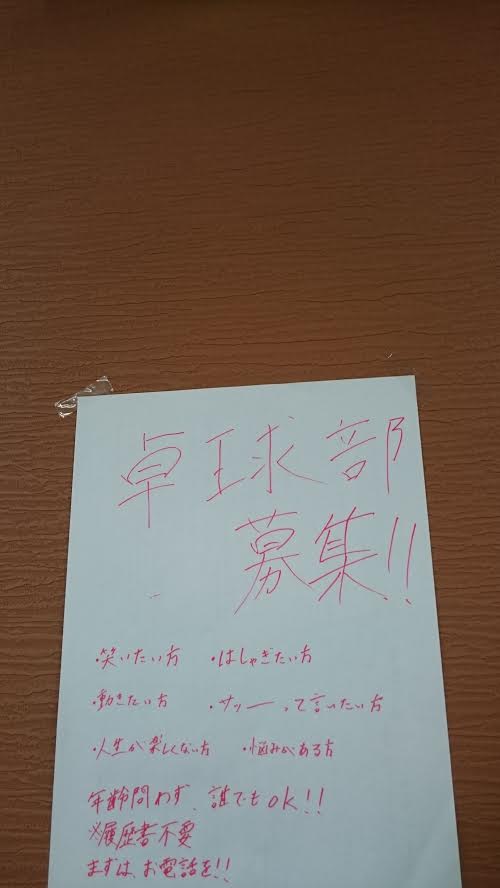 卓球部
募集!!
・笑いたい方 ・はしゃぎたい方
・動きたい方 ・サッーって言いたい方
・人生が楽しくない方 ・悩みがある方
年齢問わず、誰でもok!!
※履歴書不要
まずは、お電話を!!